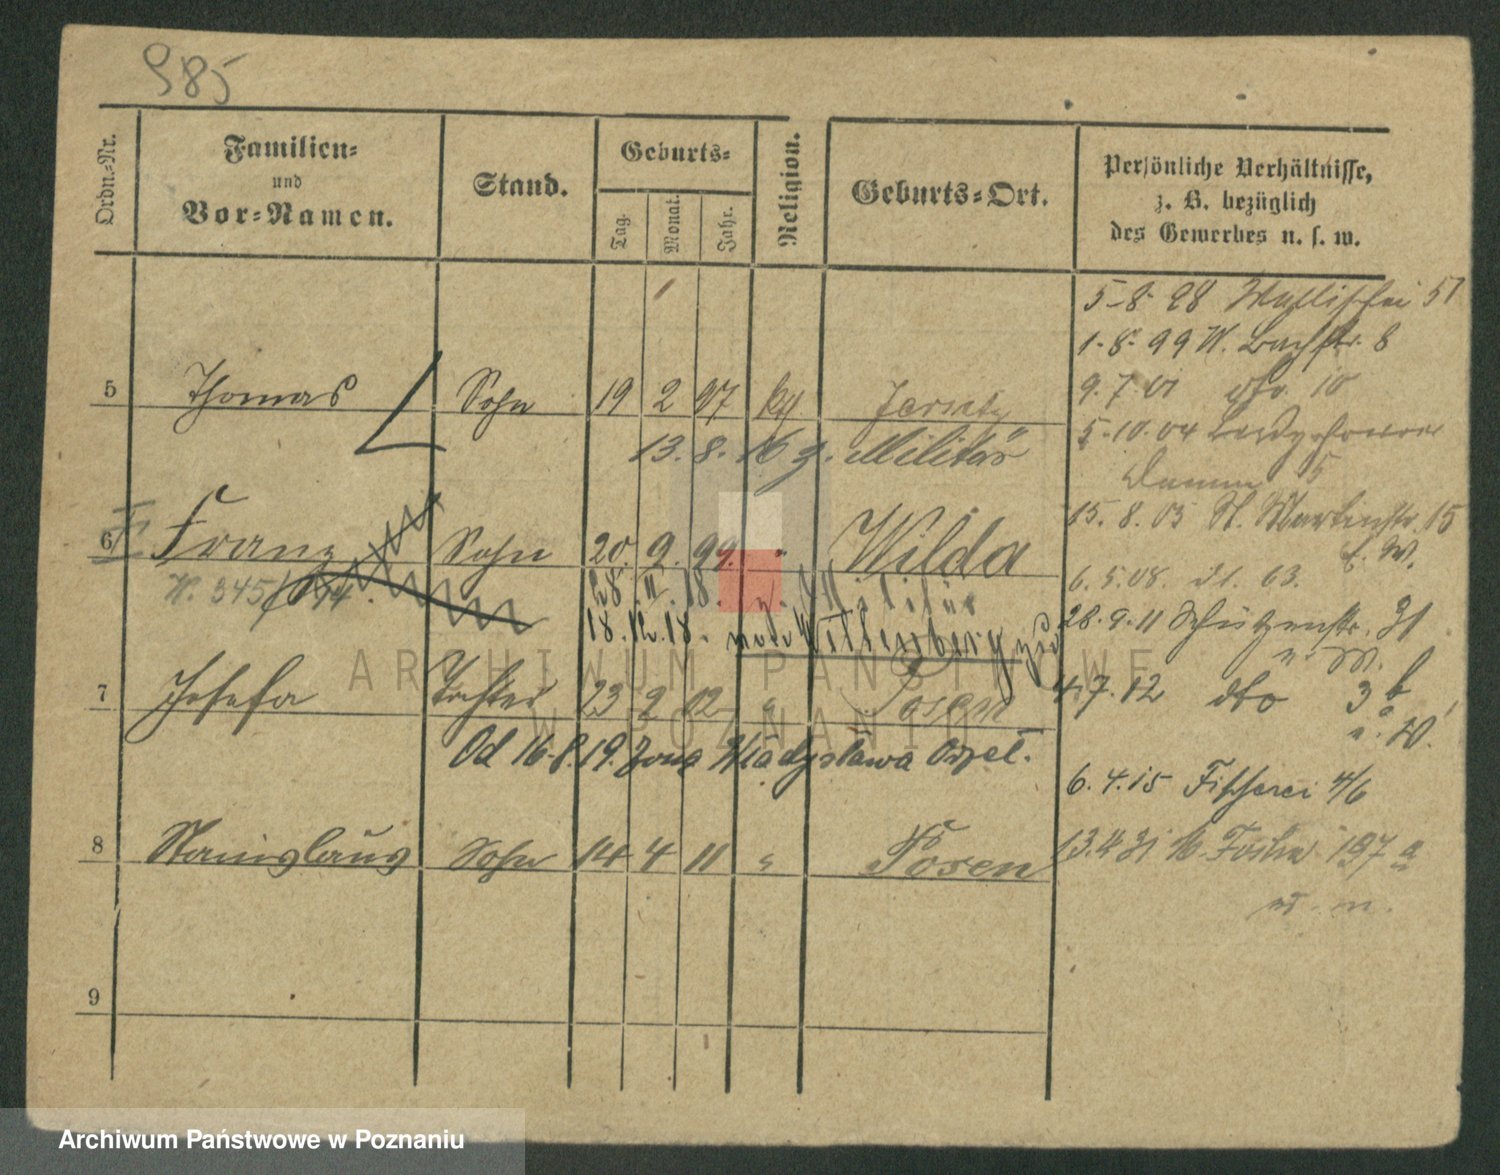 985
Ordn.-Nr.
Familien-
und
Vor-Namen.
Stand.
Geburts-
Tag.
Monat.
Jahr.
Religion.
Geburts-Ort.
Persönliche Verhältnisse,
z. B. bezüglich
des Gewerbes u. s. w.
5-8-98 Wallischei 51
1.-8.-99 W. Bachstr. 8
9.7.01 dto. 10
5 Thomas Sohn 19 2 97 kg Jersitz
5.-10.04
13.8.16 z. Militär
Damm 5
15.8.05 St. Martinstr. 15
6 Franz Sohn 20. 9. 99. " Wilda
6.5.08. dt. 63.
28.II.18. z. Militär
18.12.18. nach Wittenberg
28.9.11 Schützenstr. 31
7 Josefa Tochter 23 2 02 " Posen
4.7.12 dto 3 b
Od 16-8.19. żona Władysława Orzeł.
6.4.15 Fischerei 4/6
8 Stanislaus Sohn 14 4 11 " Posen
13.4.31 197 a
9
ARCHIWUM PAŃSTWOWE
W POZNANIU
Archiwum Państwowe w Poznaniu